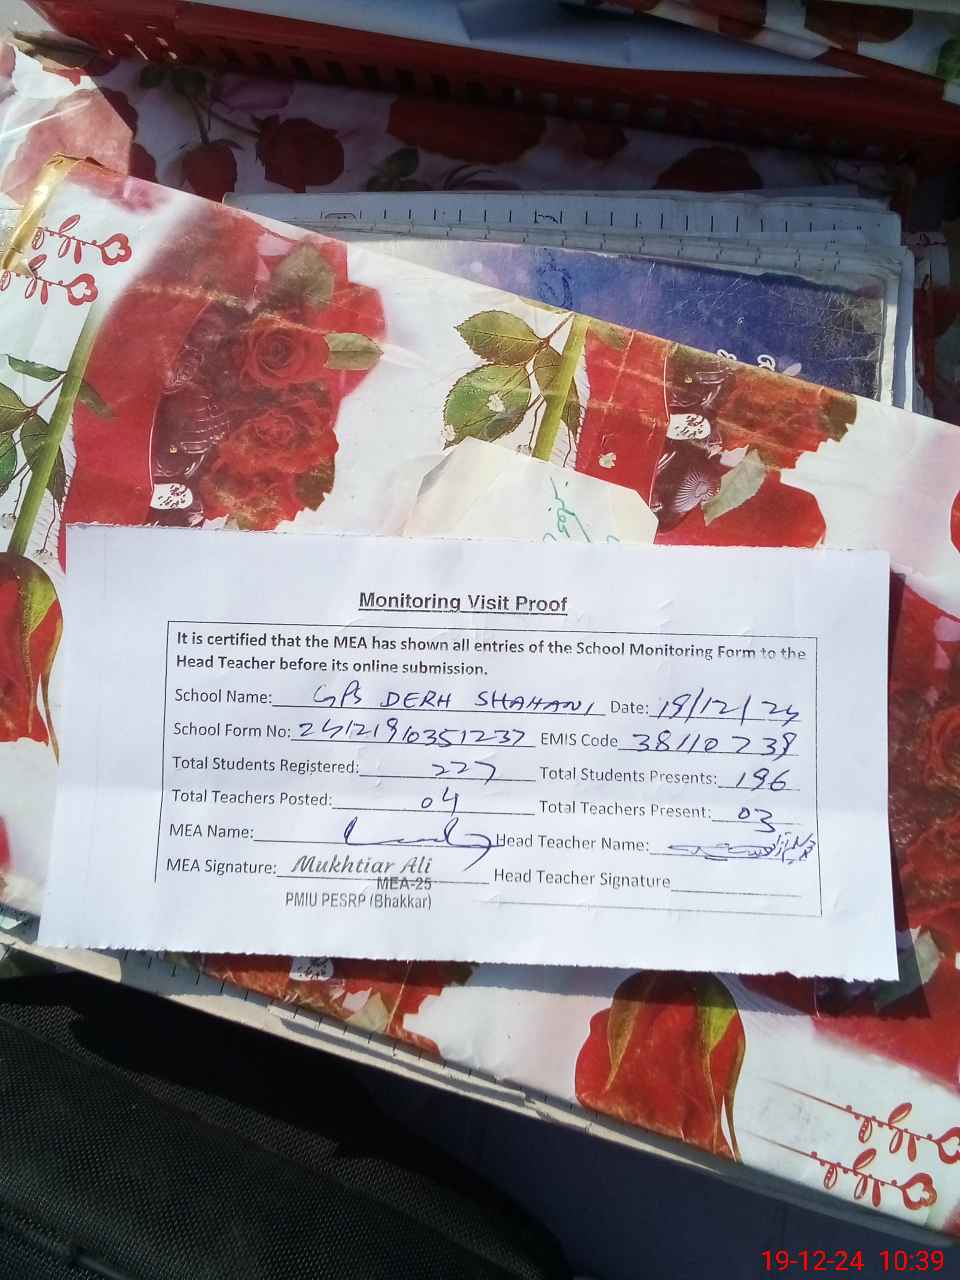 Monitoring Visit Proof
It is certified that the MEA has shown all entries of the School Monitoring Form to the
Head Teacher before its online submission.
School Name: GPS DERH SHAHANI Date: 19/12/24
School Form No: 24121910351237 EMIS Code 38110738
Total Students Registered: 227 Total Students Presents: 196
Total Teachers Posted: 04 Total Teachers Present: 03
MEA Name: Head Teacher Name:
MEA Signature: Mukhtiar Ali Head Teacher Signature
MEA-25
PMIU PESRP (Bhakkar)
19-12-24 10:39